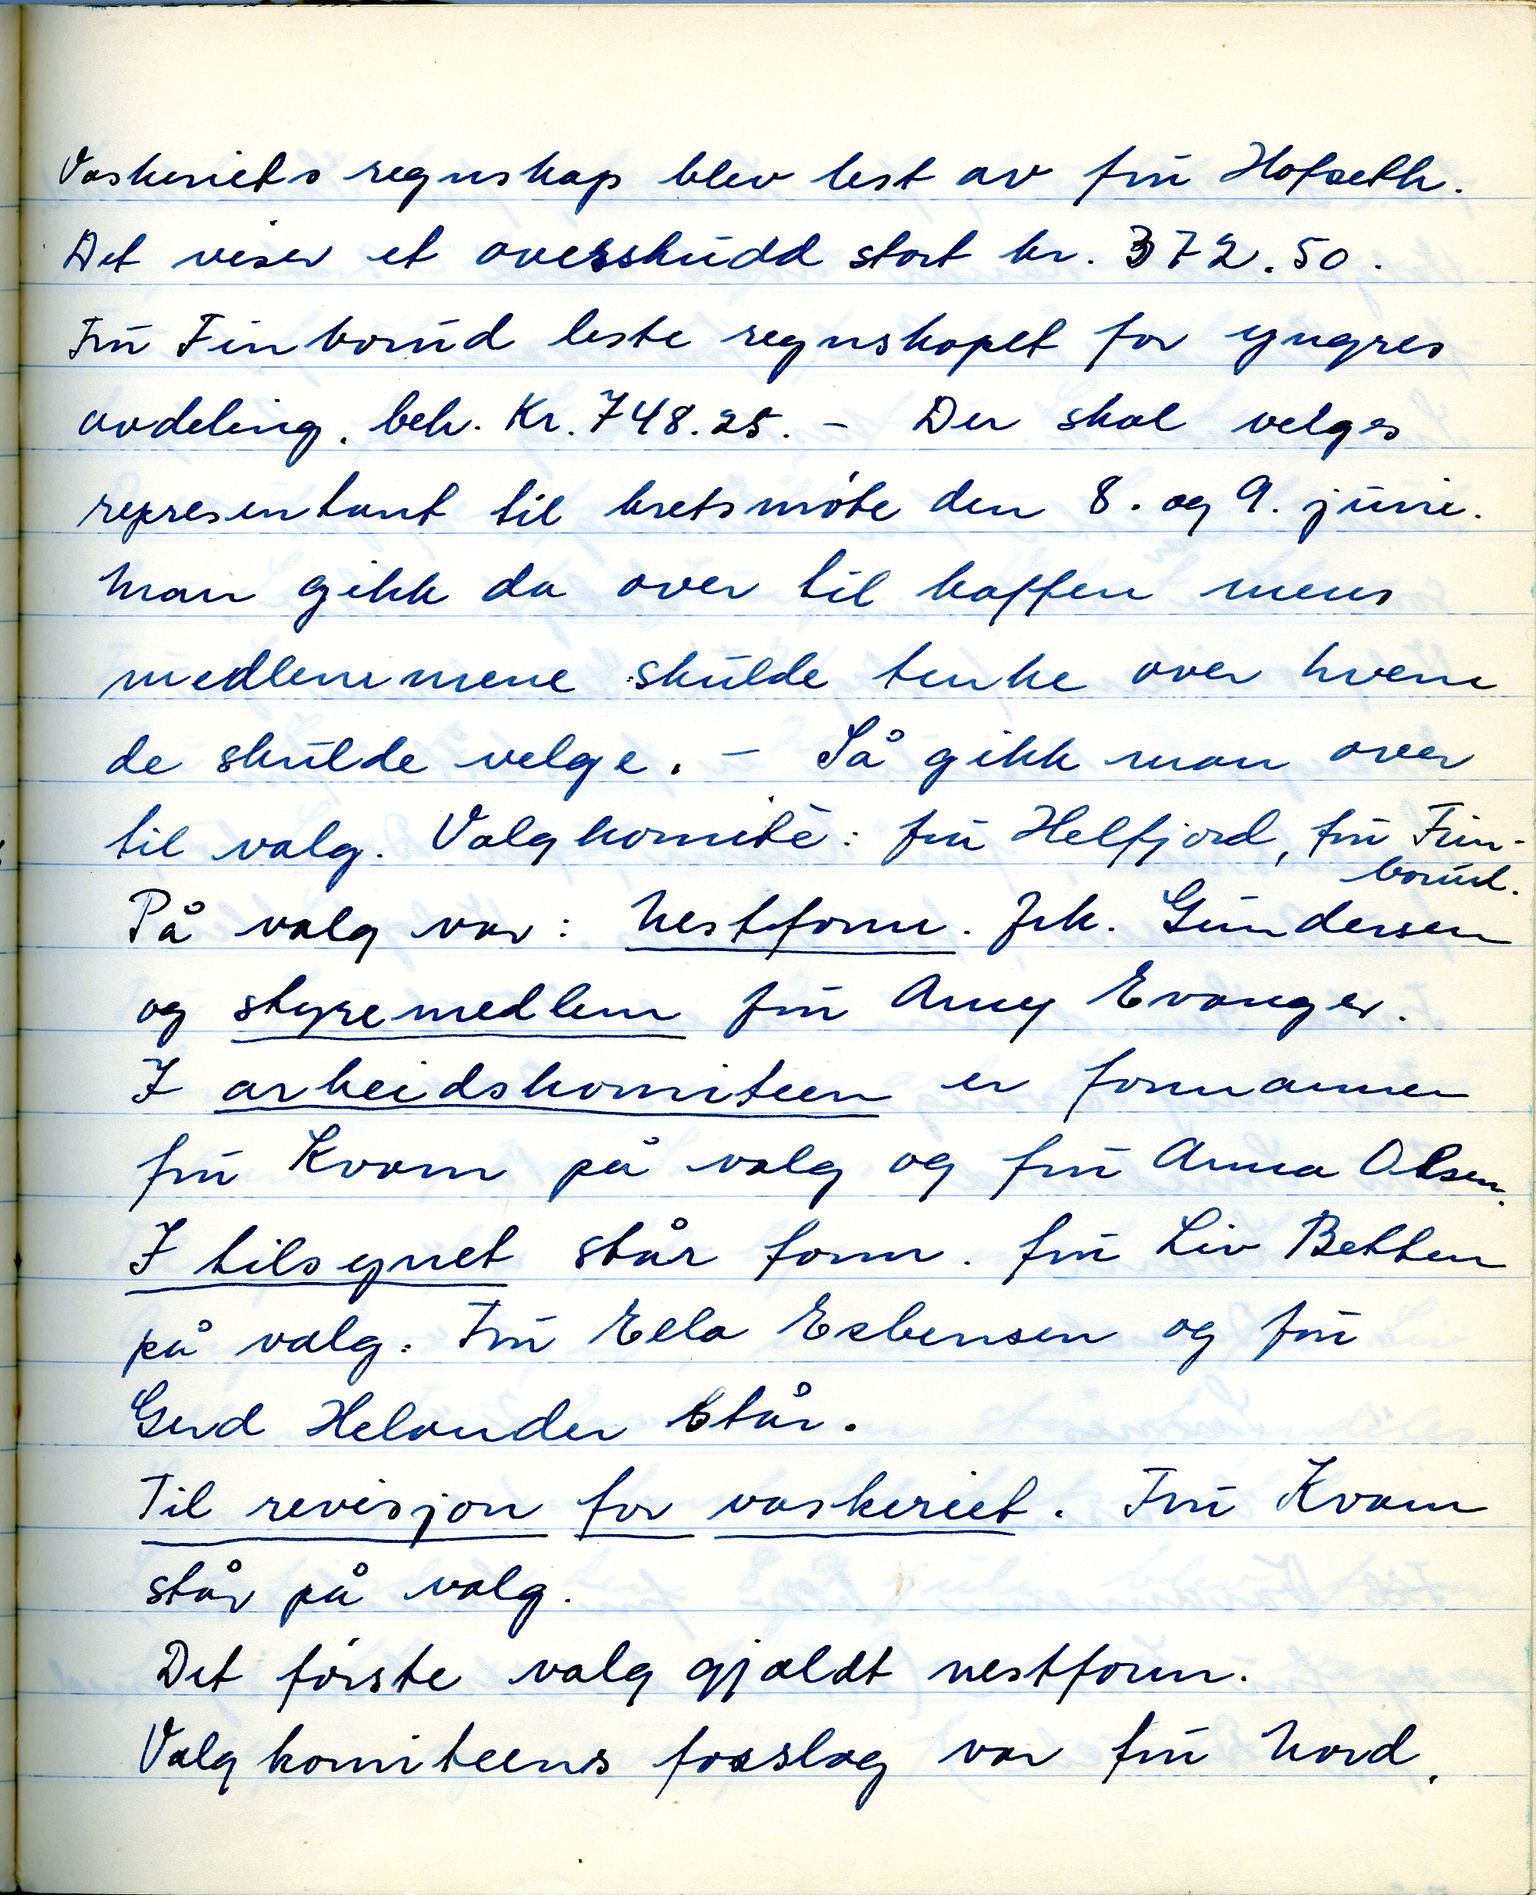 Vaskeriets regnskap blev lest av frú Hofseth.
Det viser et overskúdd stort kr. 372.50.
Frú Finborúd leste regnskapet for yngres
avdeling. beh. Kr. 748.25. - Der skal velges
representant til kretsmöte den 8. og 9. júni.
Man gikk da over til kaffen mens
medlemmene skúlde tenke over hvem
de skúlde velge. - Så gikk man over
til valg. Valgkomitè: frú Helfjord, frú Fin-
borúd.
På valg var: Nestform. frk. Gúndersen
og styremedlem frú Amy Evanger.
I arbeidskomiteen er formannen
frú Kvam på valg og frú Anna Olsen.
I tilsynet står form. frú Liv Betten
på valg. Frú Ella Esbensen og frú
Gerd Helander står.
Til revisjon for vaskeriet. Frú Kvam
står på valg.
Det förste valg gjaldt nestform.
Valgkomiteens forslag var frú Nord.